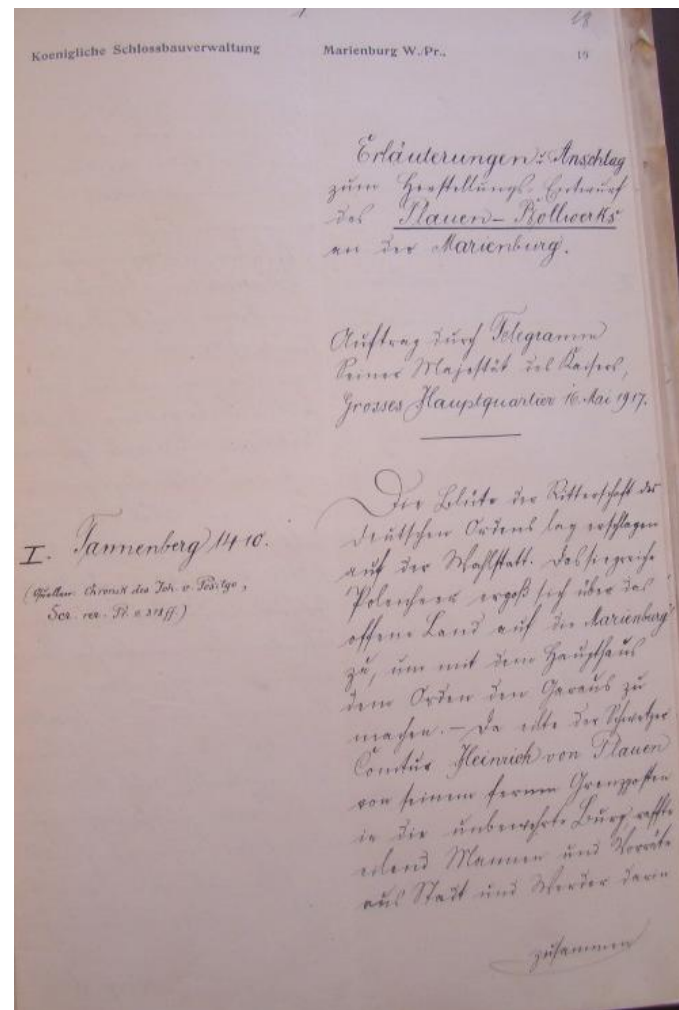 18
Koenigliche Schlossbauverwaltung
Marienburg W./Pr.,
19
Erläuterungen: Anschlag
zum Herstellungs-Entwurf
des Plauen-Bollwerks
an der Marienburg.
Auftrag durch Telegramm
Seiner Majestät des Kaisers,
Grosses Hauptquartier 16. Mai 1917.
I. Tannenberg 1410.
(Quellen: Chronik des Joh. v. Posilge,
Scr. rer. Pr. 318 ff.)
Die Blüte der Ritterschaft des
Deutschen Ordens lag erschlagen
auf der Wahlstatt. Das siegreiche
Polenheer ergoß sich über das
offene Land auf die Marienburg
zu, um mit dem Haupthaus
dem Orden den Garaus zu
machen. – Da eilte der Schwetzer
Comtur Heinrich von Plauen
von seinem fernen Grenzposten
in die unbewehrte Burg, raffte
eilend Mannen und Vorräte
aus Stadt und Werder darin
zusammen